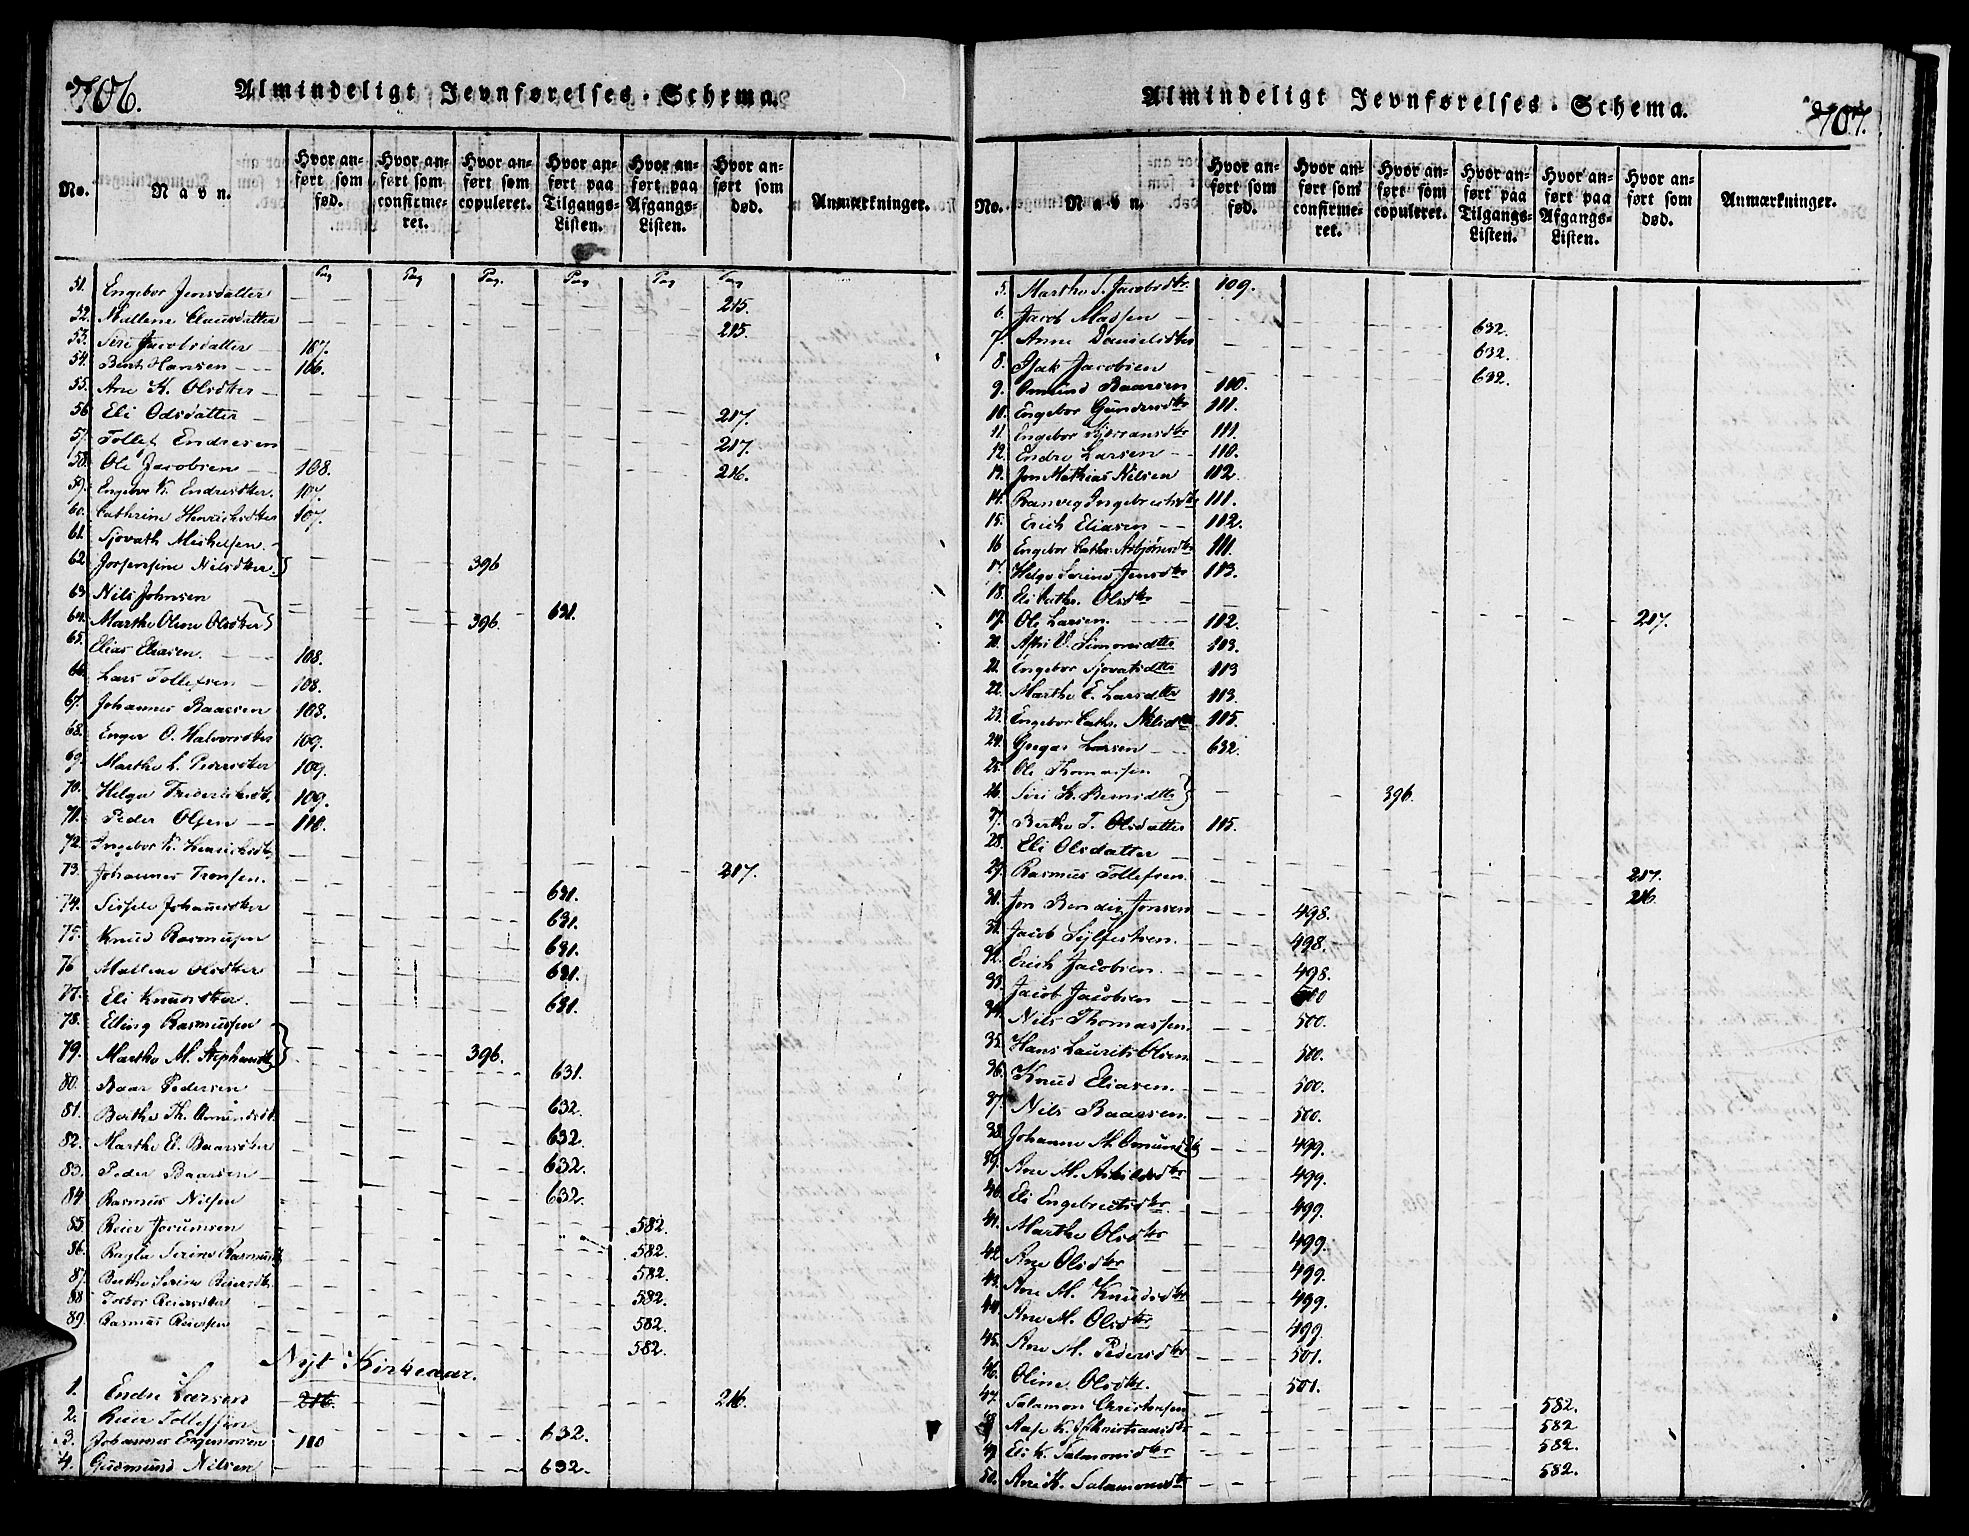 706.
Almindeligt Jevnførelses-Schema.
No.
Navn.
Hvor anført som fød.
Hvor anført som confirmeret.
Hvor anført som copuleret.
Hvor anført paa Tilgangs-Listen.
Hvor anført paa Afgangs-Listen.
Hvor anført som død.
Anmærkninger.
Pag Pag Pag. Pag Pag Pag
51. Engebor Jensdatter 215.
52. Mallene Clausdatter 215.
53. Siri Jacobsdatter 107.
54. Bent Hansen 106.
55. Ane K. Olsdter 217.
56. Eli Odsdatter 217.
57. Tollef Endresen 216.
58. Ole Jacobsen 108.
59. Engebor K. Endresdter. 107.
60. Cathrine Henrichsdter 107.
61. Sjovath Michelsen.
62. Josephine Nilsdter } 396
63. Nils Johnsen 631.
64. Marthe Oline Olsdter } 396.
65. Elias Eliasen. 108.
66. Lars Tollefsen 108.
67. Johannes Baarsen 108.
68. Enger O. Halvorsdter 109.
69. Marthe L. Pedersdter 109.
70. Helga Friderichsdt. 109.
71. Peder Olsen 110.
72. Ingebor K. Henrichsdt. 217.
73. Johannes Tronsen. 631.
74. Sissele Johannesdter 631.
75. Knud Rasmusen 631.
76 Mallene Olsdter 631.
77. Eli Knudsdter. 631.
78. Elling Rasmussen
79. Marthe M. Stephansdt. } 396. 631.
80. Baar Pedersen 632.
81. Berthe Th. Omundsdt. 632.
82. Marthe El. Baarsdter 632.
83. Peder Baarsen 632.
84. Rasmus Nilsen 582.
85. Reier Jorumsen 582.
86. Ragla Serine Rasmusdt. 582.
87. Berthe Serine Reiersdt. 582.
88 Torbor Reiersdter 582.
89. Rasmus Reiersen 582.
Nyt Kirkeaar.
1. Endre Larsen 216. 216.
2. Reier Tollefsen 632.
3. Johannes Engemorsen 110
4. Gudmund Nilsen 632.
707.
Almindeligt Jevnførelses-Schema.
No.
Navn.
Hvor anført som fød.
Hvor anført som confirmeret.
Hvor anført som copuleret.
Hvor anført paa Tilgangs-Listen.
Hvor anført paa Afgangs-Listen.
Hvor anført som død.
Anmærkninger.
5. Marthe S. Jacobsdtr. 109.
6. Jacob Madsen 632.
7. Anne Danielsdter 632.
8. Isak Jacobsen 632.
9. Omund Baarsen 110.
10. Engebor Gundersdtr 111.
11. Engebor Bjørransdtr 111.
12. Endre Larsen 110.
13. Jon Mathias Nilsen 112.
14. Ranveg Ingebrethsdtr 111.
15. Erich Eliasen 112.
16 Engebor Cathr. Asbjørnsdtr 111.
17. Helga Serine Jensdtr 113.
18. Eli Cathr. Olsdtr 217.
19. Ole Larsen. 112.
20. Simonsdtr 113.
21. Engebor Sjovatsdtr 113
22. Marthe E. Larsdtr 113.
23. Engebor Cathr. Nilsdtr 115.
24. Gregar Larsen 632.
25. Ole Thomassen
26. Siri K. Berntsdtr } 396.
27. Berthe T. Olsdatter 115.
28. Eli Olsdatter 217.
29. Rasmus Tollefsen. 216.
30. Jon Jonsen 498.
31. Jacob Sylfestsen. 498.
32. Erich Jacobsen. 498.
33. Jacob Jacobsen 500
34. Nils Thomassen. 500.
35. Hans Laurits Olsen. 500.
36. Knud Eliasen. 500.
37. Nils Baarsen. 500.
38. Johanne M. Omundsdtr 499.
39. Ane M. Askildsdtr 499.
40. Eli Engebretsdtr 499.
41. Marthe Olsdtr 499.
42 Ane Olsdtr 499.
43. Ane M. Knudsdtr 499.
44. Ane M. Olsdtr. 499.
45. Ane M. Pedersdtr 501.
46. Oline Olsdtr. 501.
47. Salamon Christensen 582.
48. Aase K. Christiansdtr 582
49. Eli K. Salmonsdtr 582.
50. Ane K. Salamonsdtr 582.